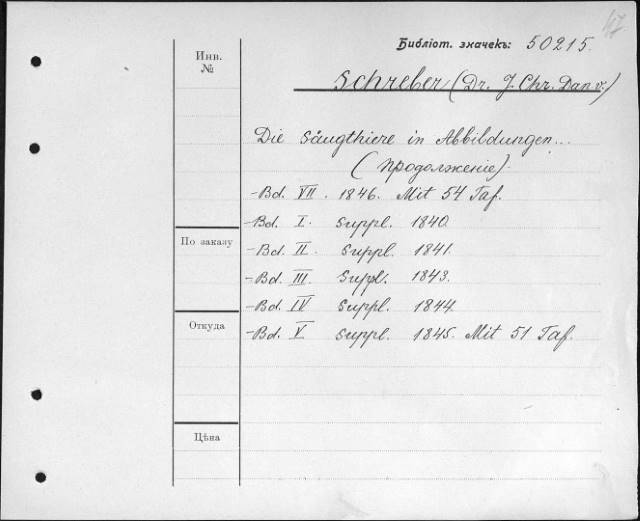 47
Библіот. значекъ: 50215.
Инв.
№
Schreber (Dr. J. Chr. Dan. v.)
Die Säugthiere in Abbildungen...
(продолженіе).
- Bd. VII. 1846. Mit 54 Taf.
- Bd. I. Suppl. 1840.
По заказу
- Bd. II. Suppl. 1841.
- Bd. III. Suppl. 1843.
- Bd. IV Suppl. 1844.
Откуда
- Bd. V Suppl. 1845. Mit 51 Taf.
Цѣна